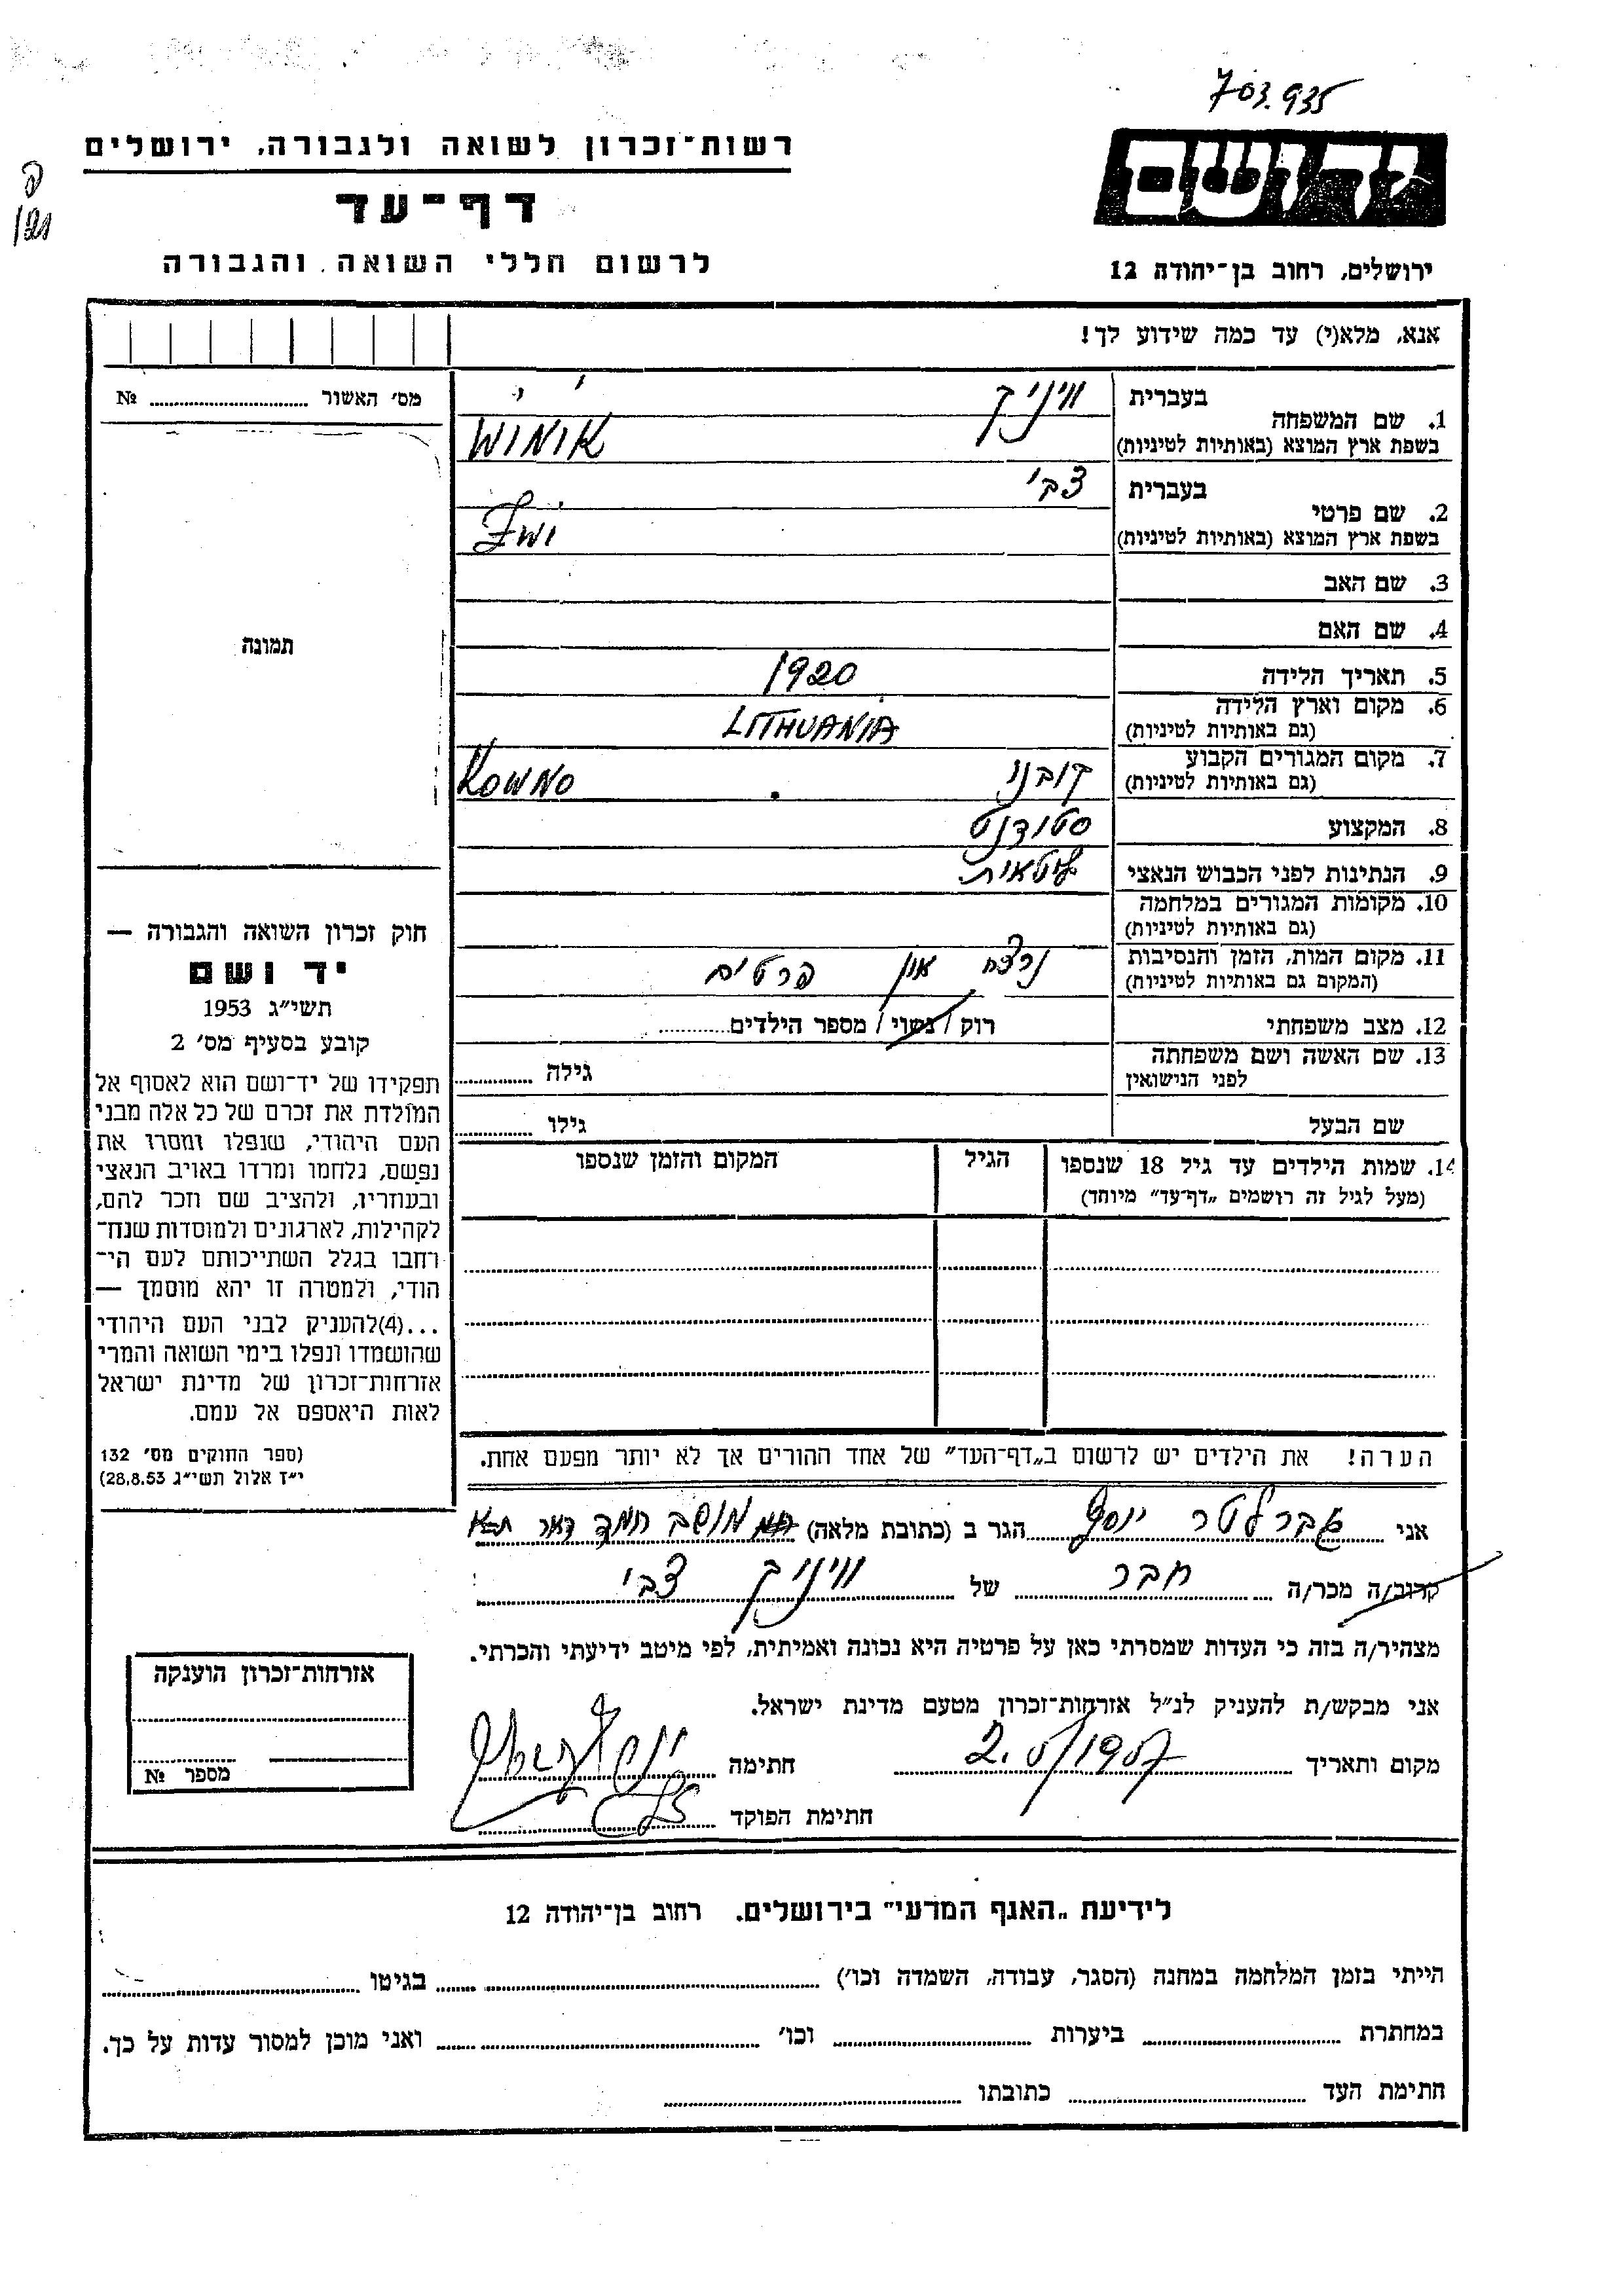 703.935
רשות־זכרון לשואה ולגבורה, ירושלים
יד ושם
דף־עד
לרשום חללי השואה והגבורה
ירושלים, רחוב בן־יהודה 12
אנא, מלא(י) עד כמה שידוע לך!
מס׳ האשור № ........
1. שם המשפחה
בעברית וויניק
בשפת ארץ המוצא (באותיות לטיניות) WINIK
2. שם פרטי
בעברית צבי
בשפת ארץ המוצא (באותיות לטיניות) Zwi
3. שם האב
4. שם האם
תמונה
5. תאריך הלידה 1920
6. מקום וארץ הלידה (גם באותיות לטיניות) LITHUANIA
7. מקום המגורים הקבוע (גם באותיות לטיניות) קובנו KOWNO
8. המקצוע סטודנט
9. הנתינות לפני הכבוש הנאצי ליטאית
10. מקומות המגורים במלחמה (גם באותיות לטיניות)
11. מקום המות, הזמן והנסיבות (המקום גם באותיות לטיניות) נרצח אין פרטים
12. מצב משפחתי רוק / נשוי / מספר הילדים........
13. שם האשה ושם משפחתה לפני הנישואין גילה ........
שם הבעל גילו ........
14. שמות הילדים עד גיל 18 שנספו הגיל המקום והזמן שנספו
(מעל לגיל זה רושמים „דף־עד״ מיוחד)
הערה! את הילדים יש לרשום ב„דף־העד״ של אחד ההורים אך לא יותר מפעם אחת.
חוק זכרון השואה והגבורה —
יד ושם
תשי״ג 1953
קובע בסעיף מס׳ 2
תפקידו של יד־ושם הוא לאסוף אל
המולדת את זכרם של כל אלה מבני
העם היהודי, שנפלו ומסרו את
נפשם, נלחמו ומרדו באויב הנאצי
ובעוזריו, ולהציב שם וזכר להם,
לקהילות, לארגונים ולמוסדות שנח־
רחבו בגלל השתייכותם לעם הי־
הודי, ולמטרה זו יהא מוסמך —
...(4)להעניק לבני העם היהודי
שהושמדו ונפלו בימי השואה והמרי
אזרחות־זכרון של מדינת ישראל
לאות היאספם אל עמם.
(ספר החוקים מס׳ 132
י״ז אלול תשי״ג 28.8.53)
אני יוסף הגר ב (כתובת מלאה) מושב חמד דאר
קרוב/ה מכר/ה חבר של וויניק צבי
מצהיר/ה בזה כי העדות שמסרתי כאן על פרטיה היא נכונה ואמיתית, לפי מיטב ידיעתי והכרתי.
אני מבקש/ת להעניק לנ״ל אזרחות־זכרון מטעם מדינת ישראל.
מקום ותאריך חתימה
חתימת הפוקד
אזרחות־זכרון הוענקה
מספר №
לידיעת „האגף המדעי״ בירושלים, רחוב בן־יהודה 12
הייתי בזמן המלחמה במחנה (הסגר, עבודה, השמדה וכו׳) ........ בגיטו ........
במחתרת ........ ביערות ........ וכו׳ ........ ואני מוכן למסור עדות על כך.
חתימת העד ........ כתובתו ........